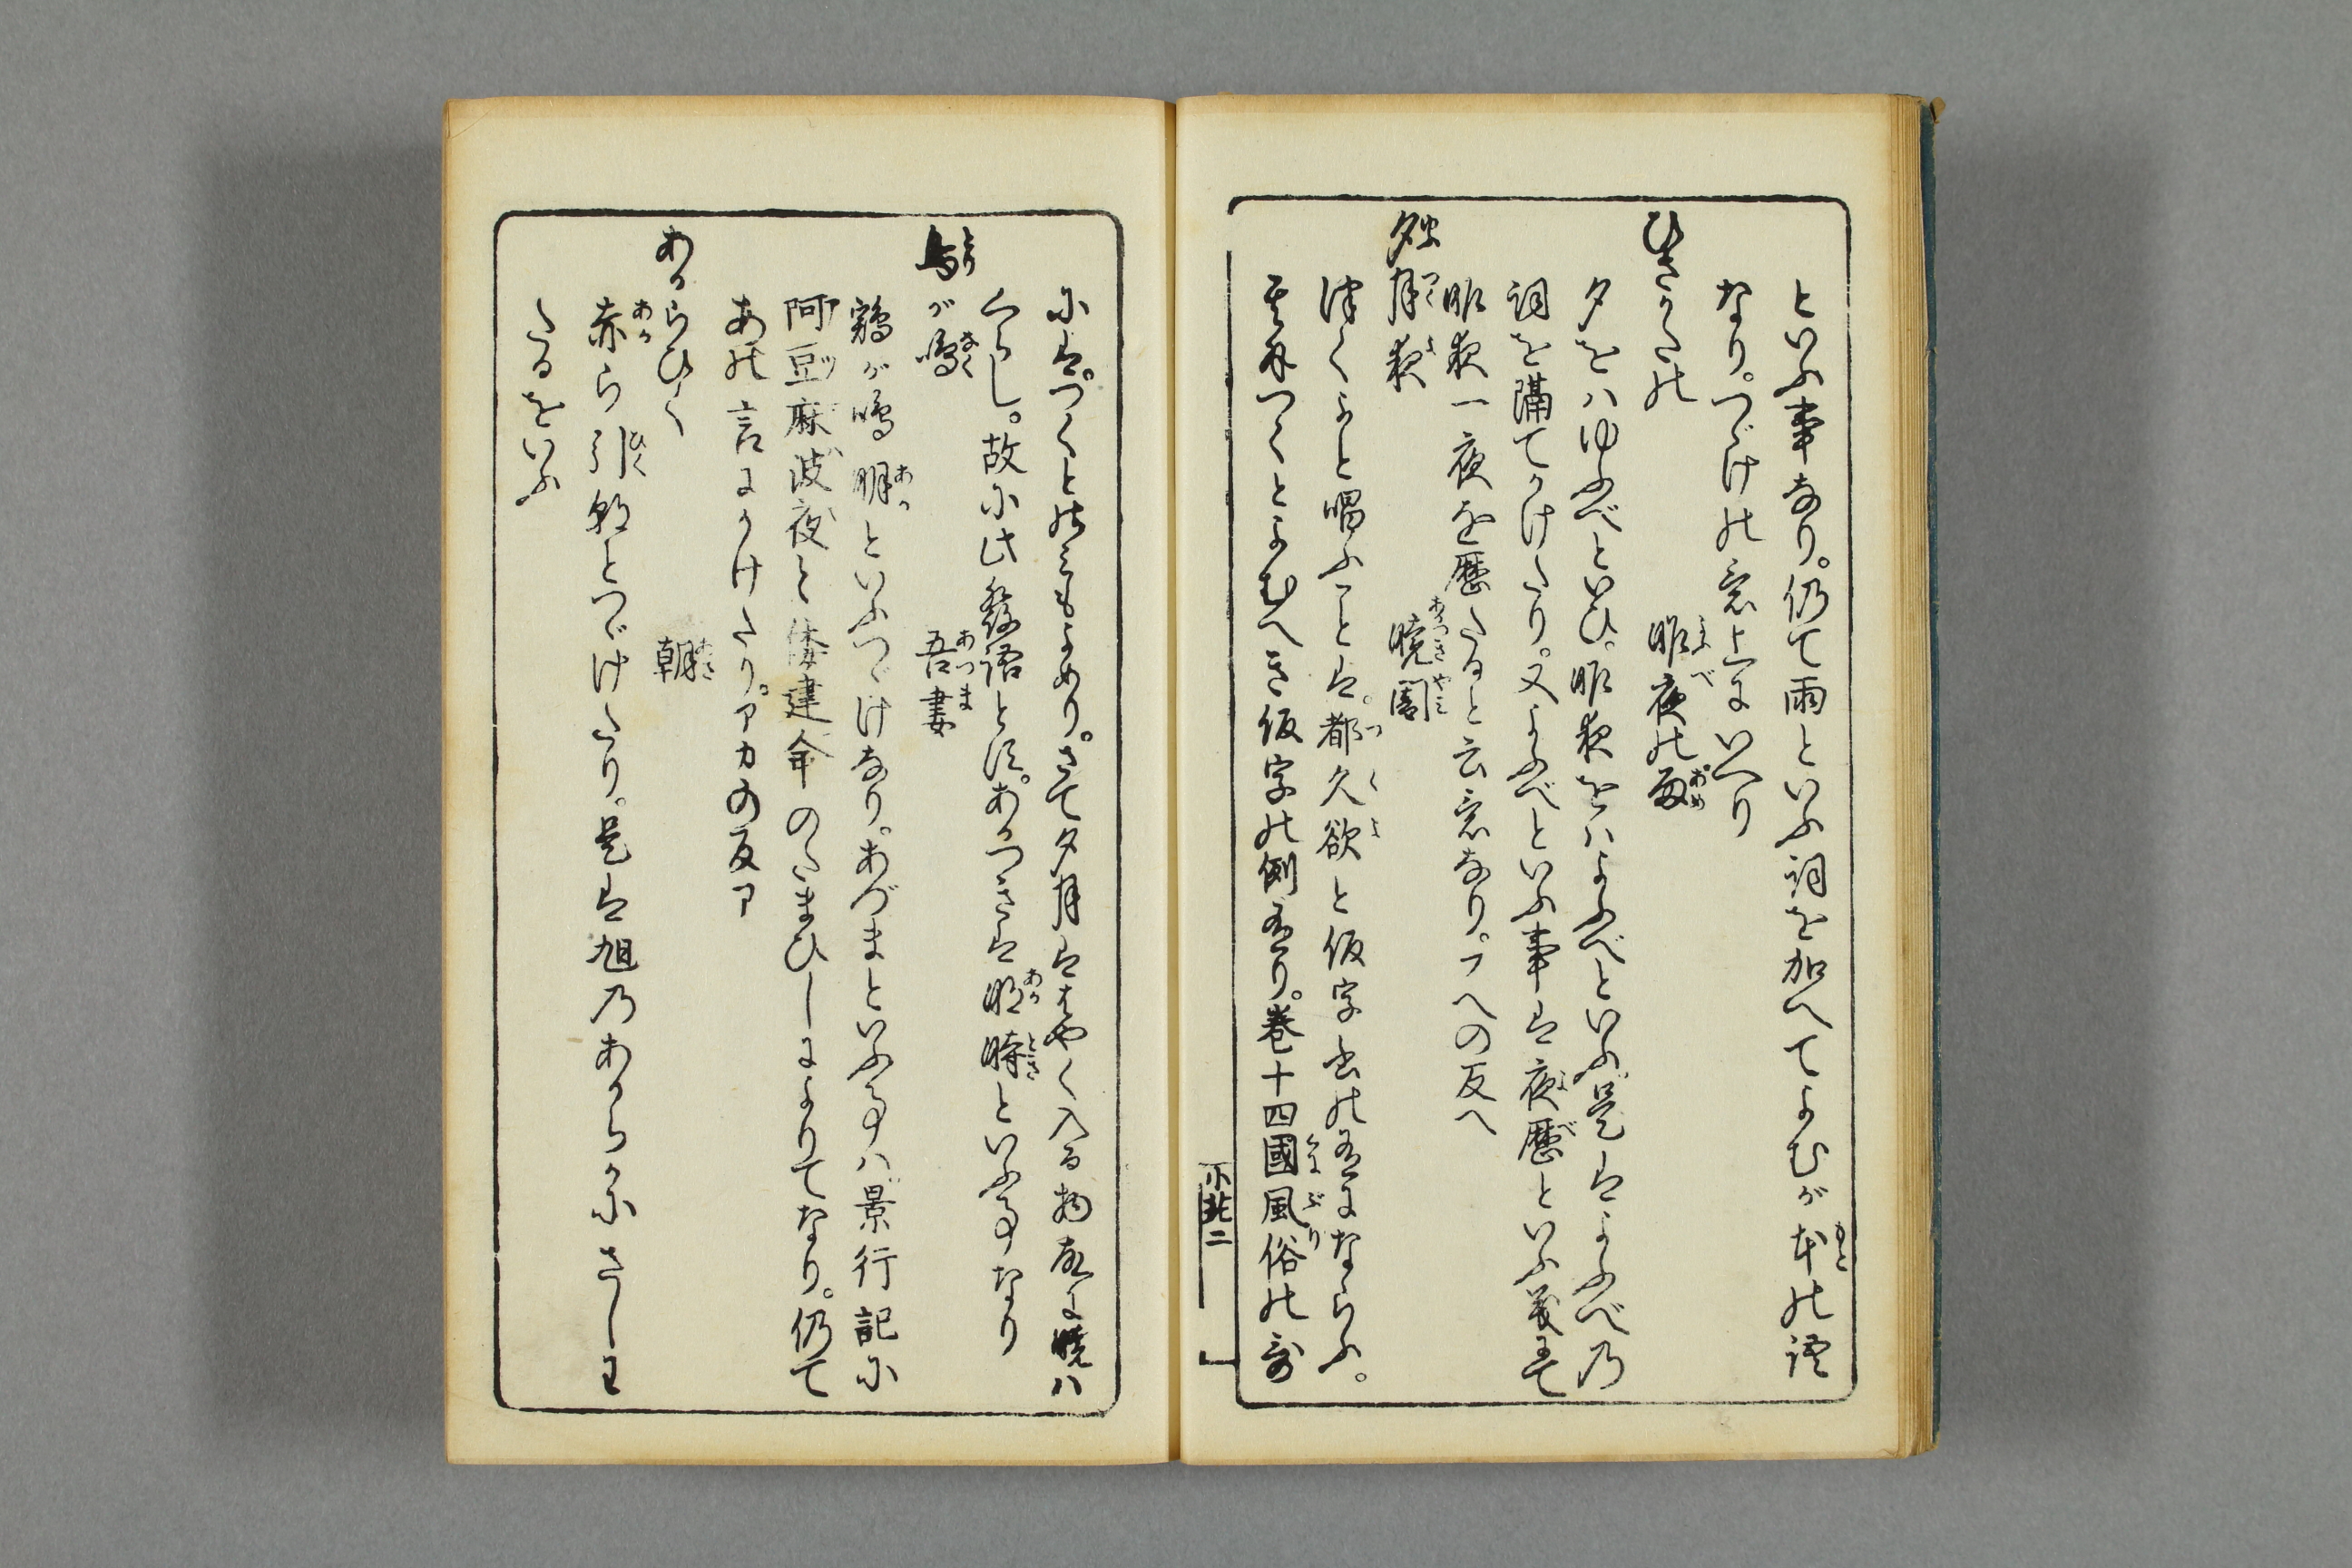 といふ事なり。仍て雨といふ詞を加へてよむが本の語
なり。つゞけの意上にいへり
ひさかたの 昨夜の雨
夕をハゆふべといひ。昨夜をハよふべといふ。是はよふべ乃
詞を隔てかけたり。又よふべといふ事は夜歴といふ義にて
昨夜一夜を歴たると云意なり。フヘの反へ
夕月夜 暁闇
津くよと唱ふことは。都久欲と仮字書の有にならふ。
又つくとよむへき仮字の例有り。巻十四國風俗の歌
尓は。つくとのミもよめり。さて夕月ははやく入る物故に暁ハ
くらし。故尓此發語とす。あかつきは明時といふ事なり
鳥が鳴 吾妻
鶏が鳴明といふつゞけなり。あづまといふ事ハ景行記尓
阿豆麻波夜と倭建命のたまひしによりてなり。仍て
あの言にかけたり。アカの反ア
あからひく 朝
赤ら引朝とつゞけたり。是は旭乃あからかにさし
たるをいふ